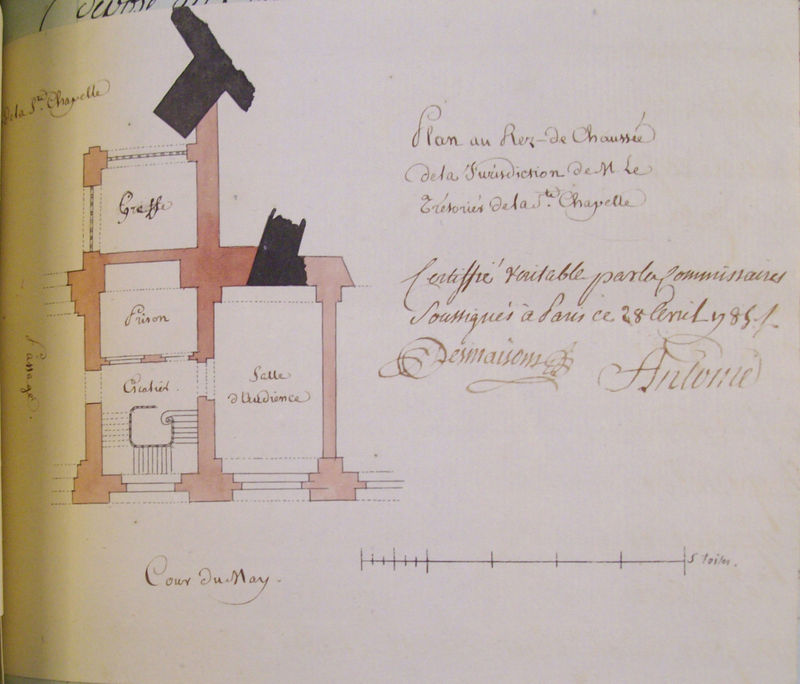 de la Ste. Chapelle
Plan au Rez-de Chaussée
de la Jurisdiction de M Le
Trésoriér de la Ste. Chapelle
Greffe
Certiffié véritable par les Commissaires
Soussignés à Paris ce 28 Avril 1785
Desmaisons
Antoine
Prison
Passage.
Escalier
Salle
d'Audience
Cour du May.
5 toises.